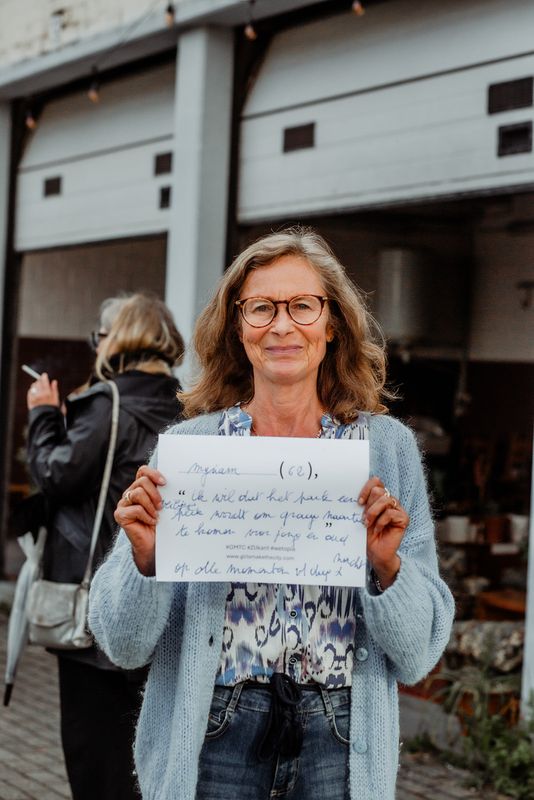 Myriam (62),
"Ik wil dat het park een
plek wordt om graag naartoe
te komen voor jong en oud"
#GMTC #ZiJkant #wetopia
www.girlsmakethecity.com
op alle momenten vd dag &
nacht